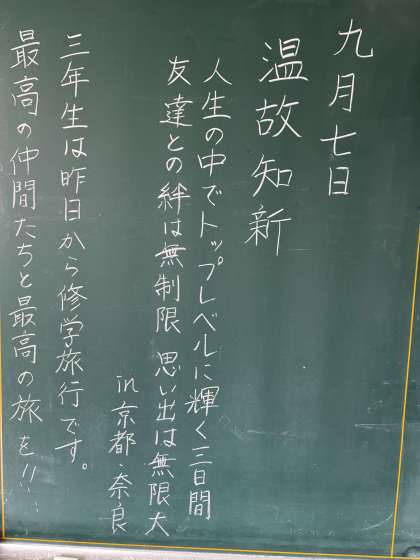 九月七日
温故知新
人生の中でトップレベルに輝く三日間
友達との絆は無制限 思い出は無限大
in京都・奈良
三年生は昨日から修学旅行です。
最高の仲間たちと最高の旅を!!